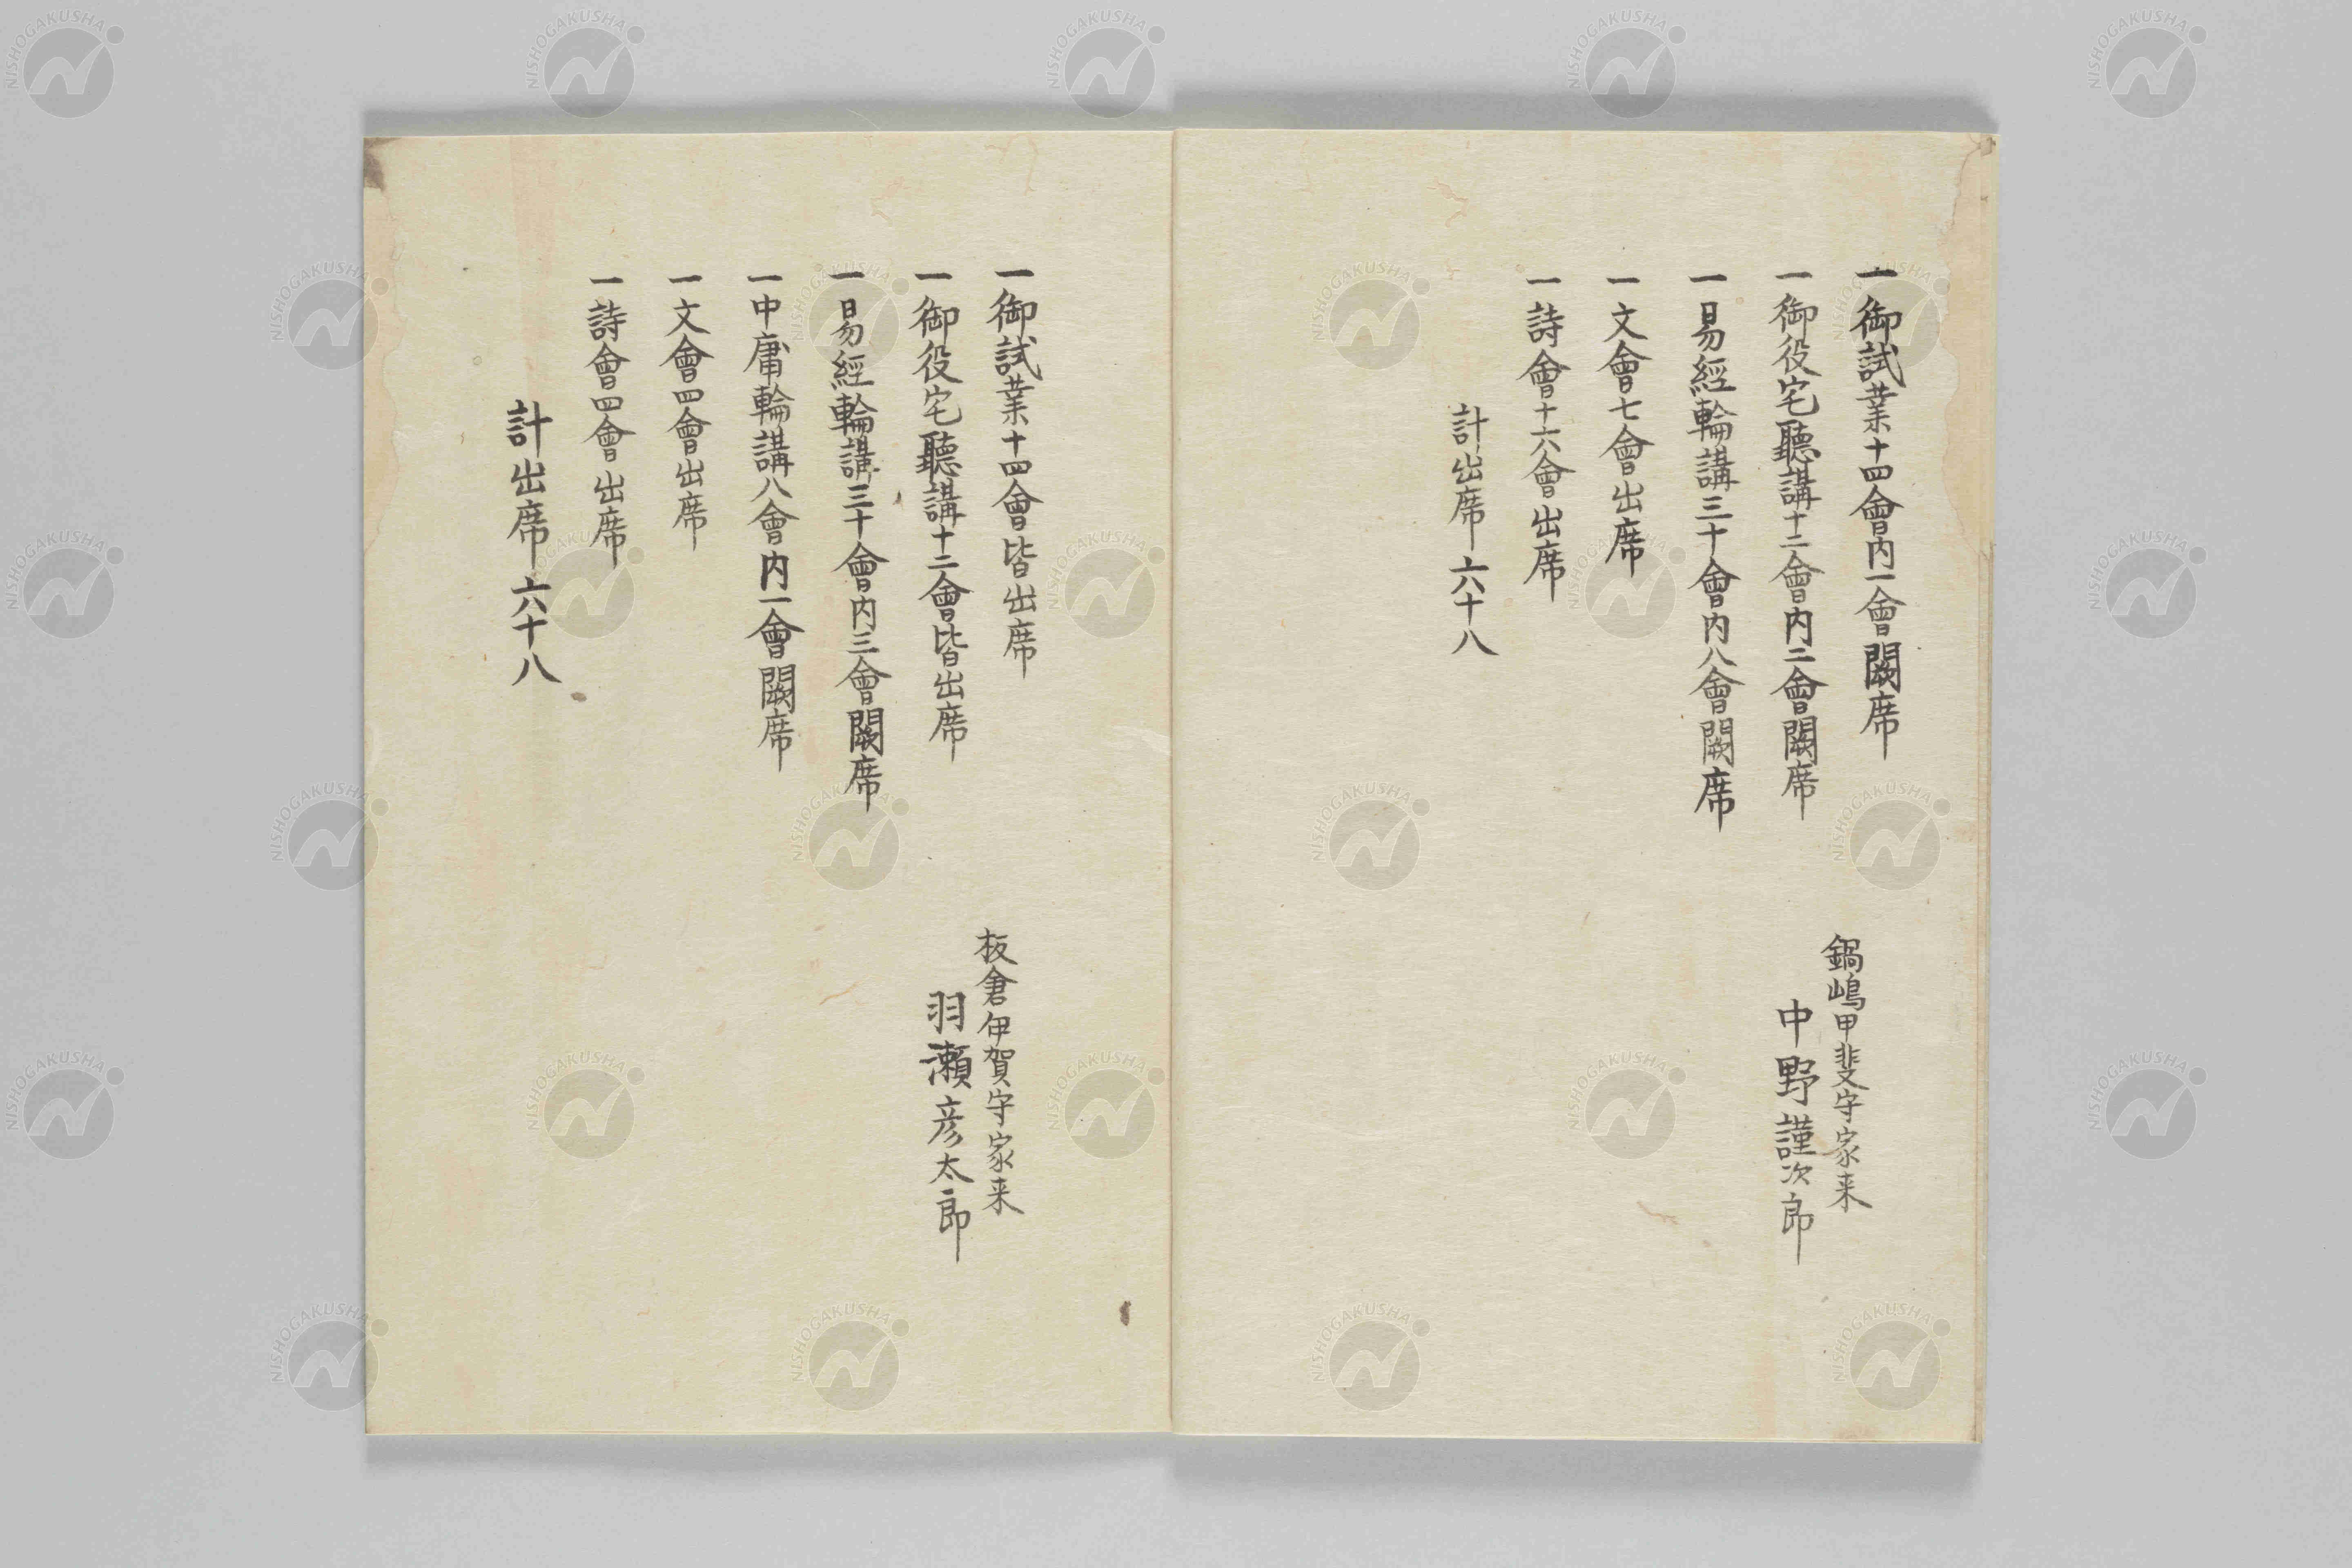 一御試業十四會内一會闕席
一御役宅聽講十二會内二會闕席
一易經輪講三十會内八會闕席
一文會七會出席
一詩會十六會出席
計出席六十八
鍋嶋甲斐守家来
中野謹次郎
一御試業十四會皆出席
一御役宅聽講十二會皆出席
一易經輪講三十會内三會闕席
一中庸輪講八會内一會闕席
一文會四會出席
一詩會四會出席
計出席六十八
板倉伊賀守家来
羽瀬彦太郎
NISHOGAKUSHA